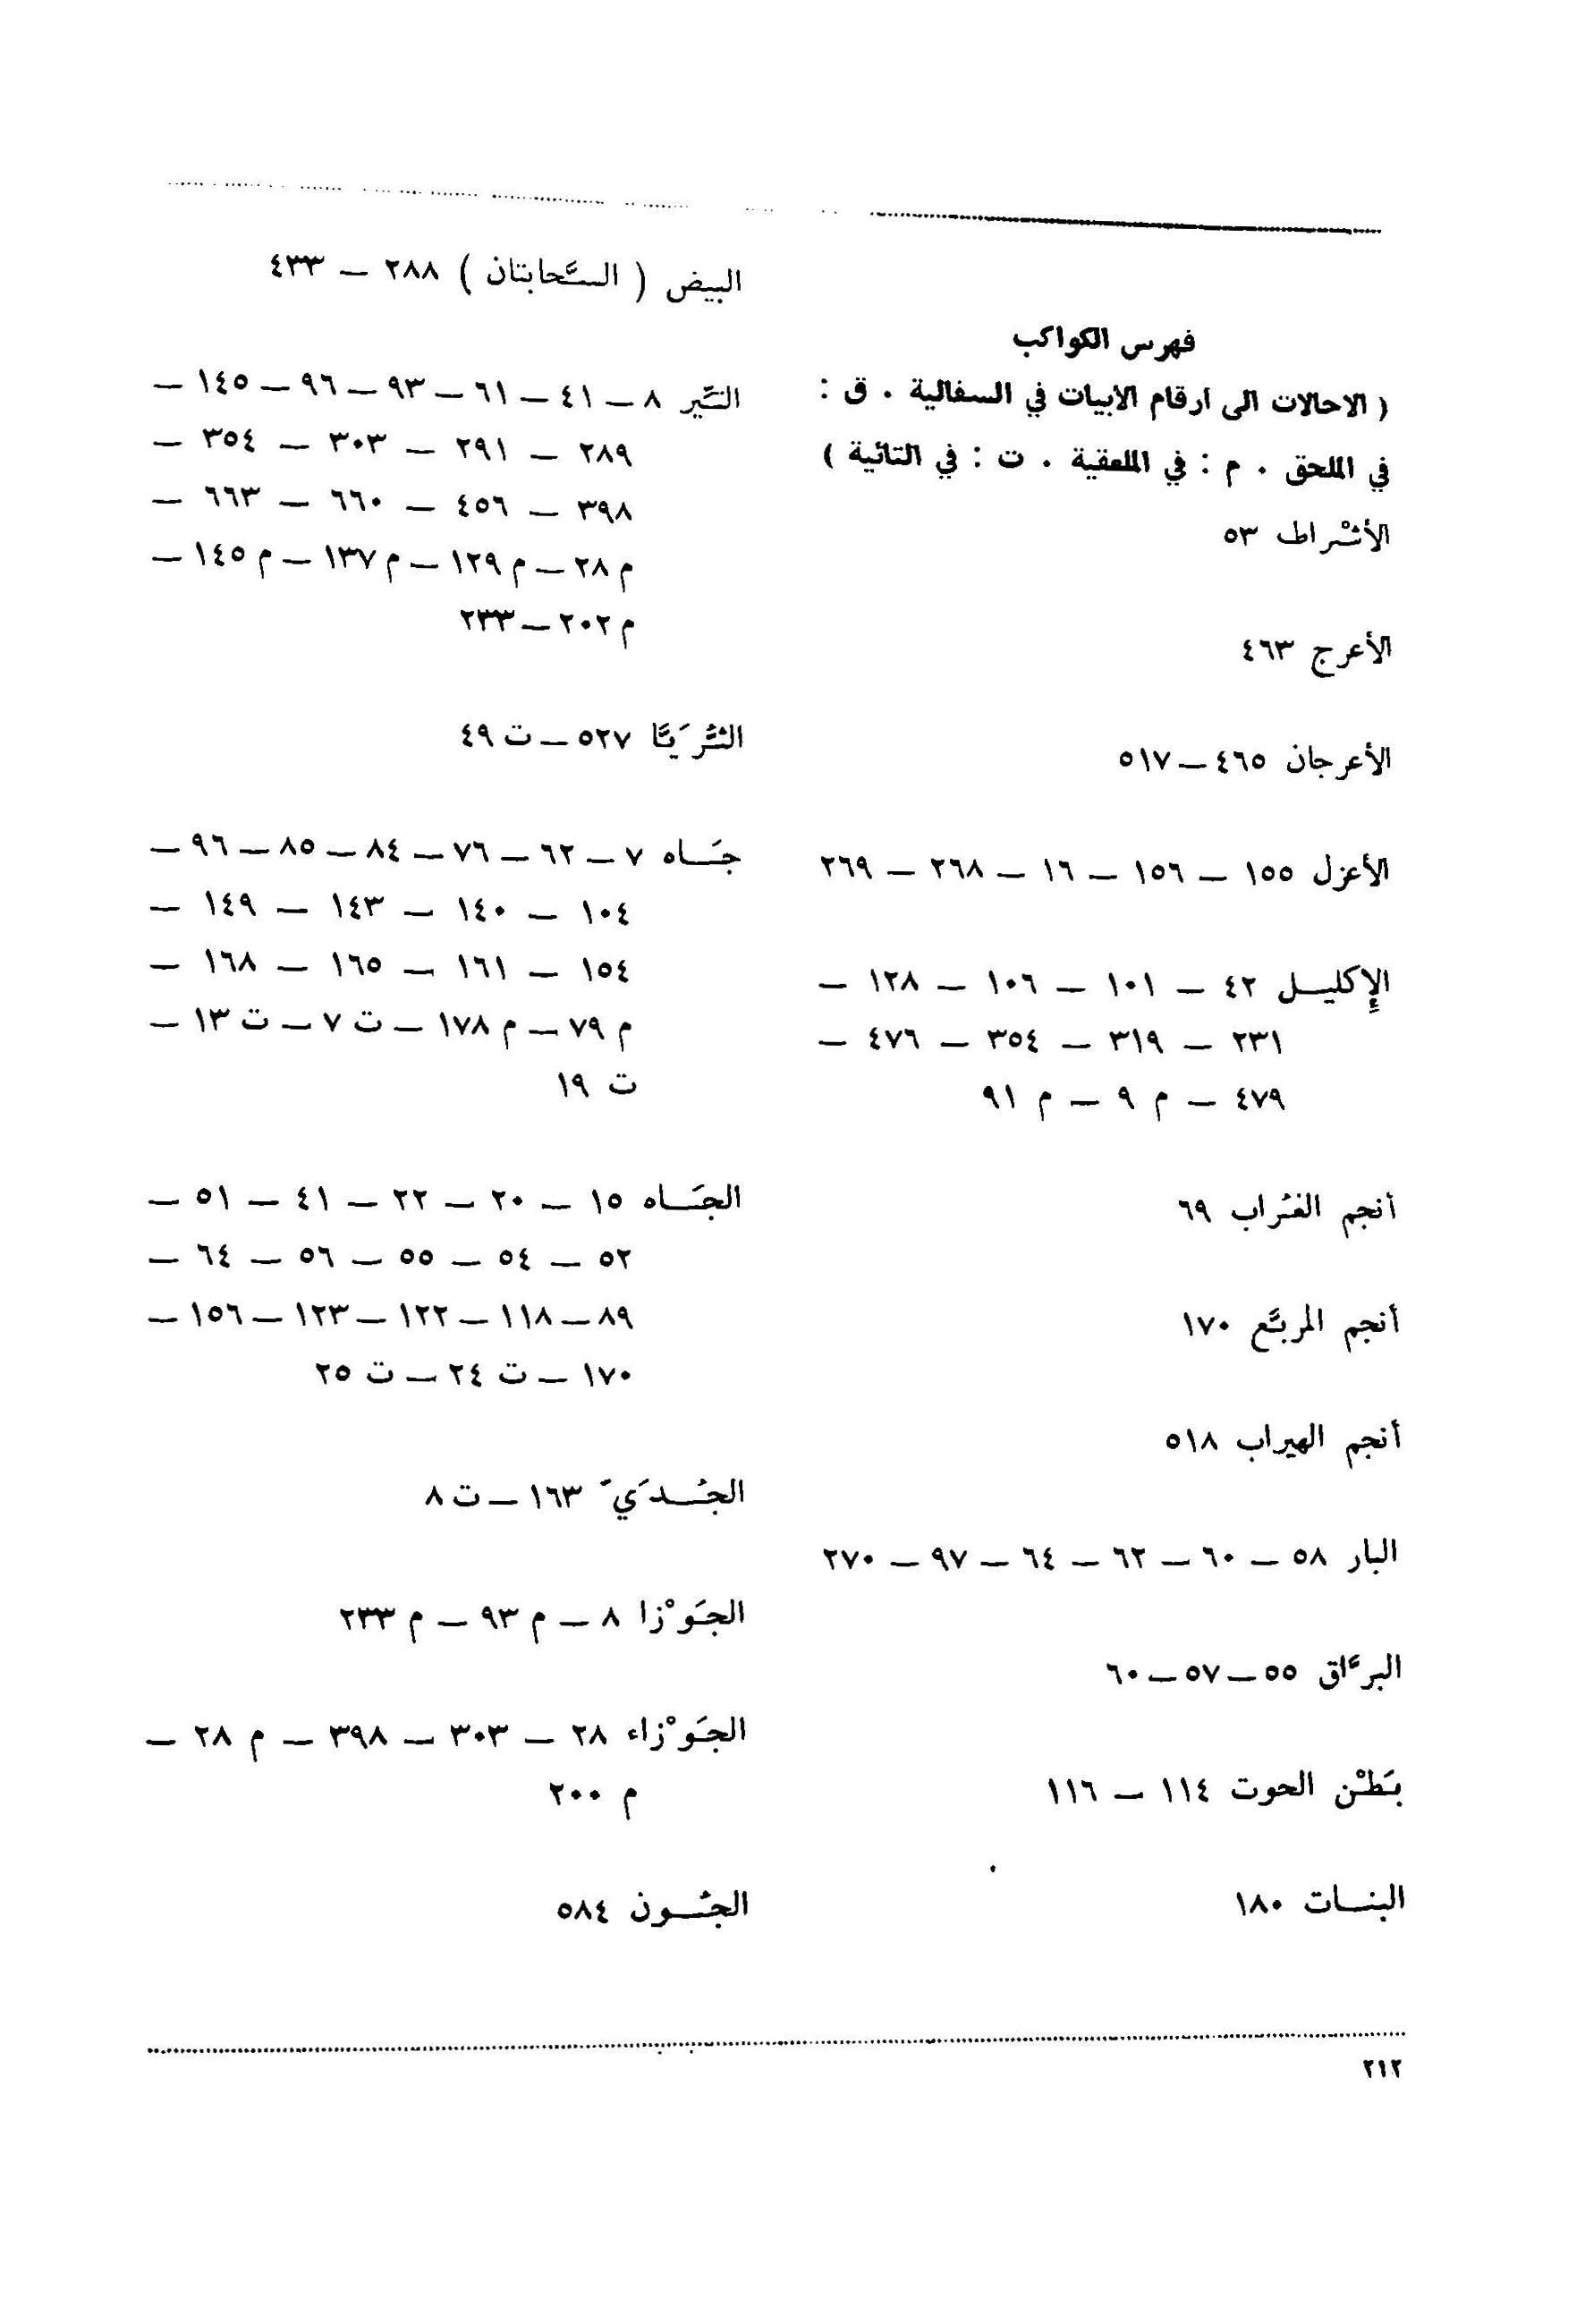 فهرس الكواكب
( الاحالات الى ارقام الابيات في السفالية . ق :
في الملحق . م : في الملعقية . ت : في التائية )
الأشْراط ٥٣
الأعرج ٤٦٣
الأعرجان ٤٦٥ – ٥١٧
الأعزل ١٥٥ – ١٥٦ – ١٦ – ٢٦٨ – ٢٦٩
الإكليـل ٤٢ – ١٠١ – ١٠٦ – ١٢٨ –
٢٣١ – ٣١٩ – ٣٥٤ – ٤٧٦ –
٤٧٩ – م ٩ – م ٩١
أنجم الغُراب ٦٩
أنجم المربَّع ١٧٠
أنجم الهيراب ٥١٨
البار ٥٨ – ٦٠ – ٦٢ – ٦٤ – ٩٧ – ٢٧٠
البرَّاق ٥٥ – ٥٧ – ٦٠
بَطْن الحوت ١١٤ – ١١٦
البنـات ١٨٠
البيض ( السَّحابتان ) ٢٨٨ – ٤٣٣
التَّير ٨ – ٤١ – ٦١ – ٩٣ – ٩٦ – ١٤٥ –
٢٨٩ – ٢٩١ – ٣٠٣ – ٣٥٤ –
٣٩٨ – ٤٥٦ – ٦٦٠ – ٦٦٣ –
م ٢٨ – م ١٢٩ – م ١٣٧ – م ١٤٥ –
م ٢٠٢ – ٢٣٣
الثُّرَيَّا ٥٢٧ – ت ٤٩
جَـاه ٧ – ٦٢ – ٧٦ – ٨٤ – ٨٥ – ٩٦ –
١٠٤ – ١٤٠ – ١٤٣ – ١٤٩ –
١٥٤ – ١٦١ – ١٦٥ – ١٦٨ –
م ٧٩ – م ١٧٨ – ت ٧ – ت ١٣ –
ت ١٩
الجَـاه ١٥ – ٢٠ – ٢٢ – ٤١ – ٥١ –
٥٢ – ٥٤ – ٥٥ – ٥٦ – ٦٤ –
٨٩ – ١١٨ – ١٢٢ – ١٢٣ – ١٥٦ –
١٧٠ – ت ٢٤ – ت ٢٥
الجُـدَيَ ١٦٣ – ت ٨
الجَوْزا ٨ – م ٩٣ – م ٢٣٣
الجَوْزاء ٢٨ – ٣٠٣ – ٣٩٨ – م ٢٨ –
م ٢٠٠
الجُـون ٥٨٤
٢١٢